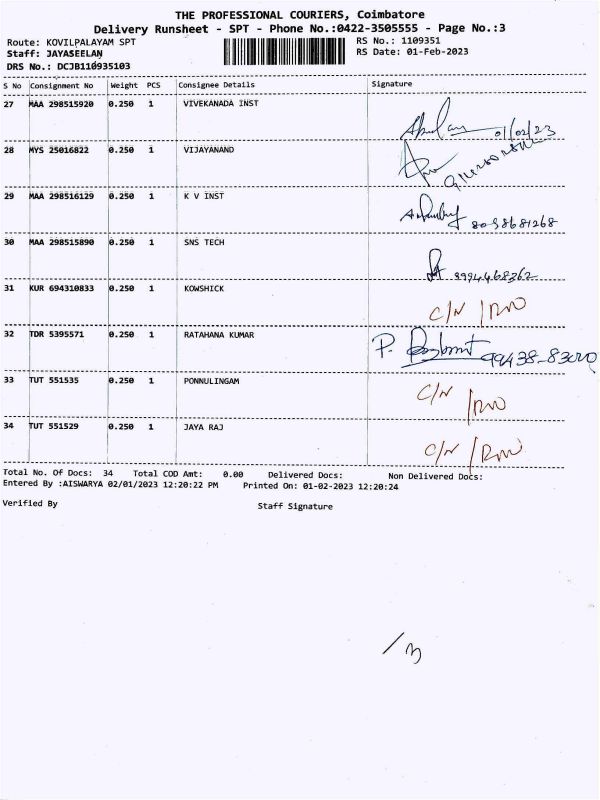 THE PROFESSIONAL COURIERS, Coimbatore
Delivery Runsheet - SPT - Phone No.:0422-3505555 - Page No.:3
Route: KOVILPALAYAM SPT
Staff: JAYASEELAN
DRS No.: DCJB110935103
RS No.: 1109351
RS Date: 01-Feb-2023
S No Consignment No Weight PCS Consignee Details Signature
27 MAA 298515920 0.250 1 VIVEKANADA INST
01/02/23
28 MYS 25016822 0.250 1 VIJAYANAND
29 MAA 298516129 0.250 1 K V INST
8098681268
30 MAA 298515890 0.250 1 SNS TECH
8994468362
31 KUR 694310833 0.250 1 KOWSHICK
C/N
32 TDR 5395571 0.250 1 RATAHANA KUMAR
P. 99438-83000
33 TUT 551535 0.250 1 PONNULINGAM
C/N
34 TUT 551529 0.250 1 JAYA RAJ
C/N
Total No. Of Docs: 34 Total COD Amt: 0.00 Delivered Docs: Non Delivered Docs:
Entered By :AISWARYA 02/01/2023 12:20:22 PM Printed On: 01-02-2023 12:20:24
Verified By Staff Signature
/3